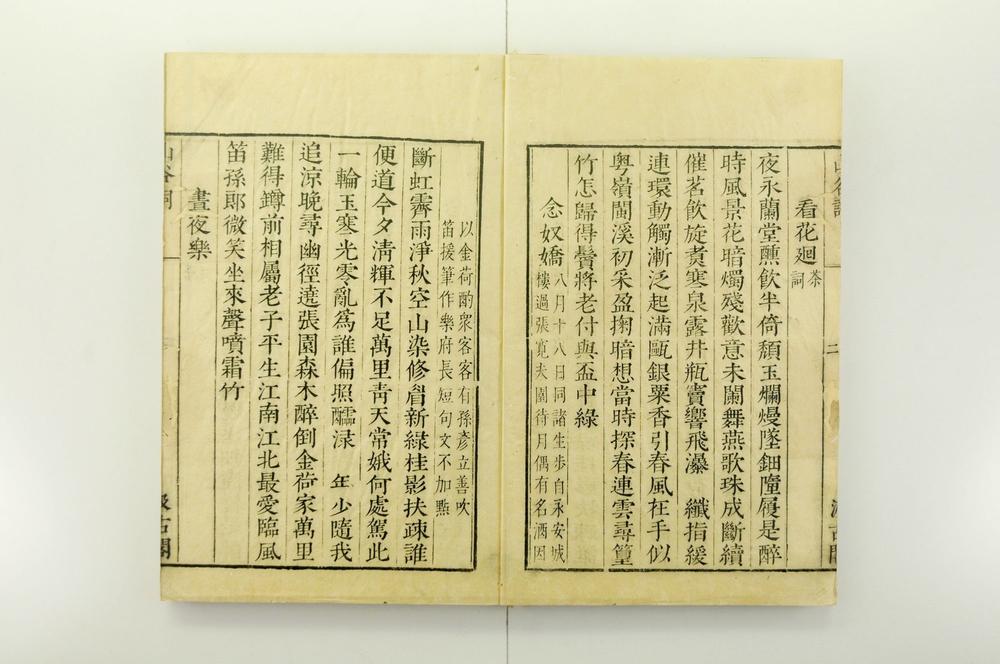 看花廻茶詞
夜永蘭堂醺飲半倚頹玉爛熳墜鈿墮履是醉
時風景花暗燭殘歡意未闌舞燕歌珠成斷續
催茗飲旋煑寒泉露井瓶竇響飛瀑 纖指緩
連環動觸漸泛起滿甌銀粟香引春風在手似
粵嶺閩溪初采盈掬暗想當時探春連雲尋篁
竹怎歸得鬢將老付與盃中綠
念奴嬌
八月十八日同諸生步自永安城
樓過張寬夫園待月偶有名酒因
以金荷酌衆客客有孫彥立善吹
笛援筆作樂府長短句文不加點
斷虹霽雨淨秋空山染修眉新綠桂影扶疎誰
便道今夕清輝不足萬里青天常娥何處駕此
一輪玉寒光零亂爲誰偏照醽淥 年少隨我
追涼晚尋幽徑遶張園森木醉倒金荷家萬里
難得罇前相屬老子平生江南江北最愛臨風
笛孫郎微笑坐來聲噴霜竹
晝夜樂